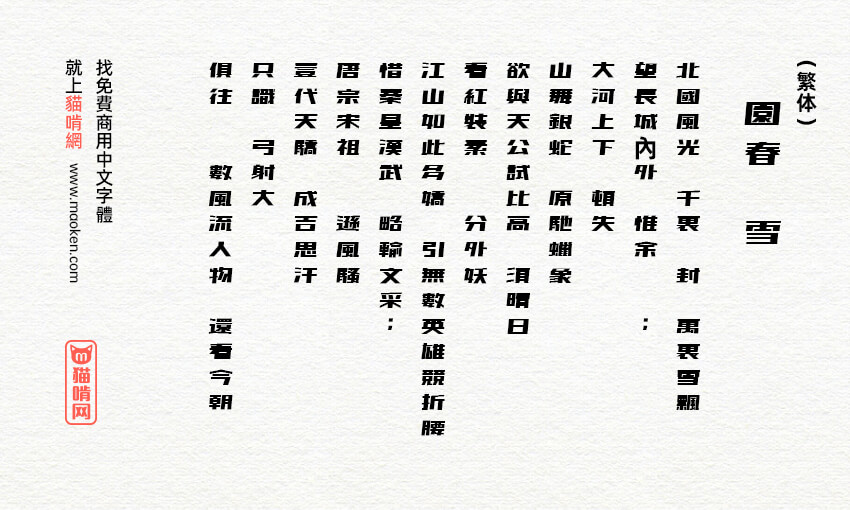 (繁体)
園春 雪
北國風光 千裏 封 萬裏雪飄
望長城內外 惟余 ；
大河上下 頓失
山舞銀蛇 原馳蠟象
欲與天公試比高 須晴日
看紅裝素 分外妖
江山如此多嬌 引無數英雄競折腰
惜秦皇漢武 略輸文采；
唐宗宋祖 遜風騷
壹代天驕 成吉思汗
只識 弓射大
俱往 數風流人物 還看今朝
找免費商用中文字體
就上貓啃網 www.maoken.com
猫啃网